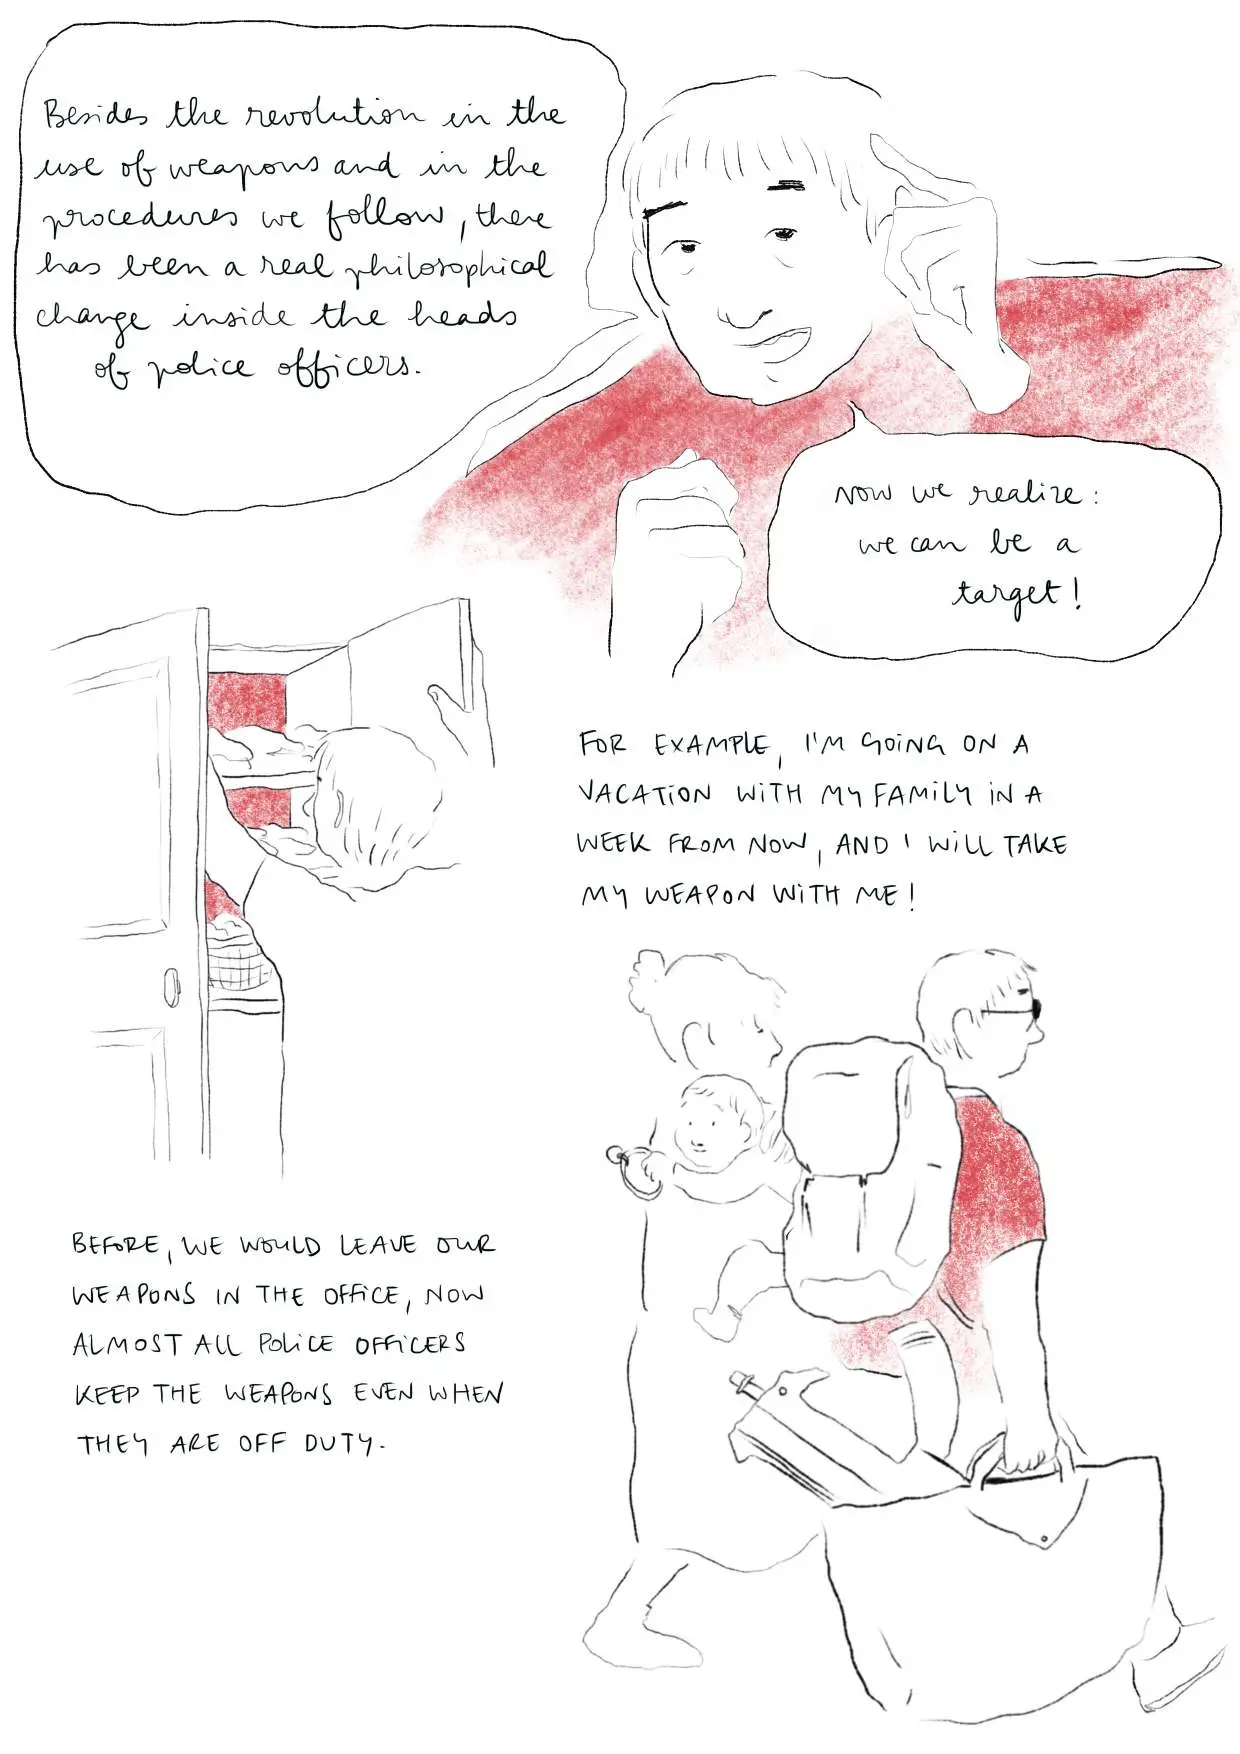 Besides the revolution in the
use of weapons and in the
procedures we follow, there
has been a real philosophical
change inside the heads
of police officers.
Now we realize:
we can be a
target!
FOR EXAMPLE, I'M GOING ON A
VACATION WITH MY FAMILY IN A
WEEK FROM NOW, AND I WILL TAKE
MY WEAPON WITH ME!
BEFORE, WE WOULD LEAVE OUR
WEAPONS IN THE OFFICE, NOW
ALMOST ALL POLICE OFFICERS
KEEP THE WEAPONS EVEN WHEN
THEY ARE OFF DUTY.